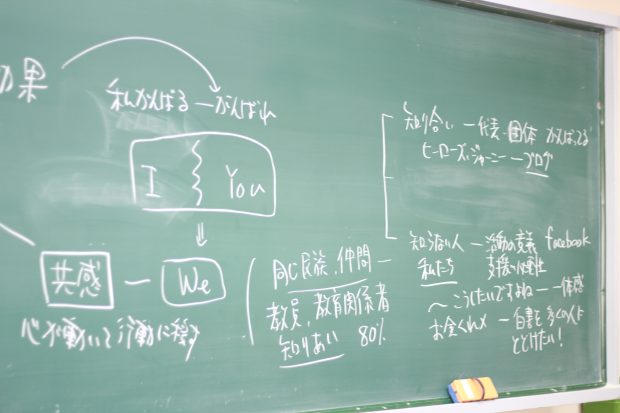 効果
私がんばる — がんばれ
I You
共感 — We
心が働いて行動に移す
同じ民族、仲間 —
教員、教育関係者
知りあい 80%
知り合い — 代表・団体 がんばってる
ヒーローズ・ジャーニー — ブログ
知らない人 — 活動の意義 facebook
私たち 支援の
〜こうしたいですよね — 一体感
お金くれ× — 白書を多くの人に
とどけたい!